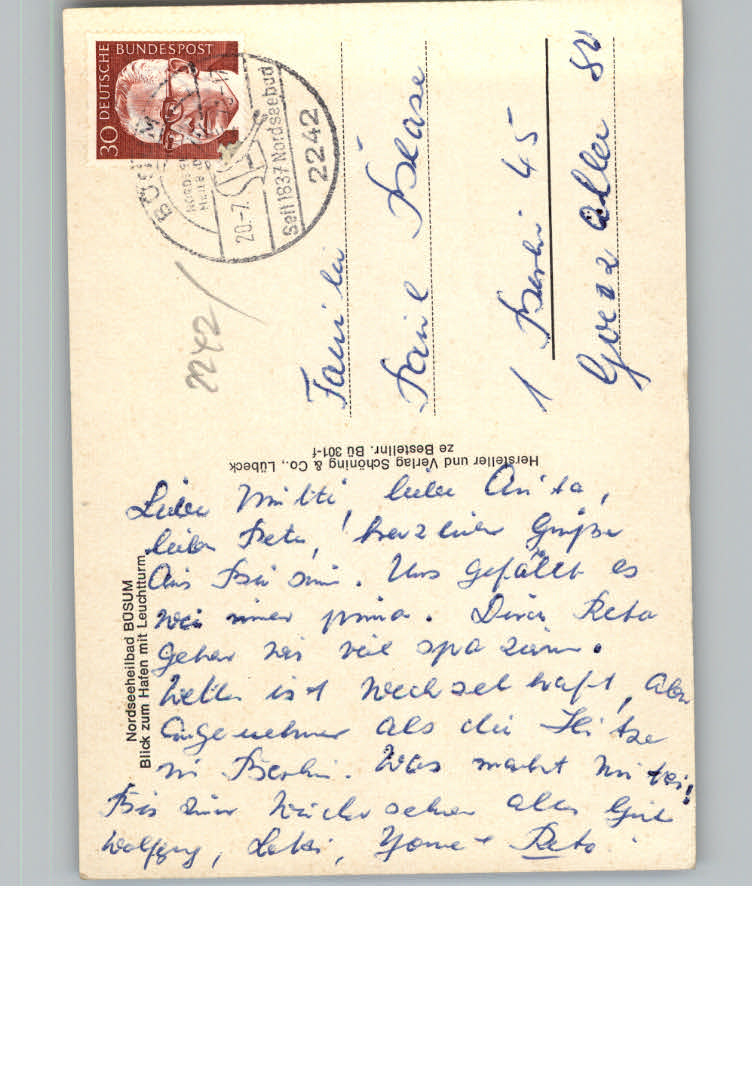 DEUTSCHE BUNDESPOST
30
BÜSUM
20.-7.
Seit 1837 Nordseebad
2242
2242
Familie
Paul Blase
1 Berlin 45
Goerz allee
Hersteller und Verlag Schöning & Co., Lübeck
ze Bestellnr. Bü 301-f
Nordseeheilbad BÜSUM
Blick zum Hafen mit Leuchtturm
Liebe Mutti, liebe Anita,
lieber Peter, herzliche Grüße
aus Büsum. Uns gefällt es
wie immer prima. Durch Reto
gehen wir viel spazieren.
Wetter ist wechselhaft, aber
angenehmer als die Hitze
in Berlin. Was macht
Bis zum Wiedersehen alles Gute
Wolfgang, + Reto